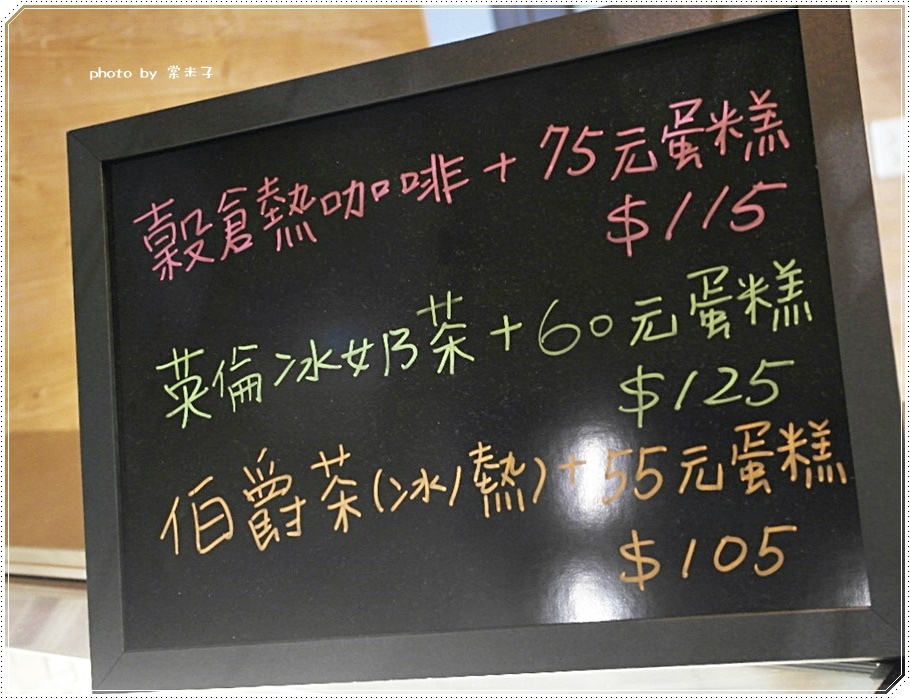 photo by 棠米子
穀倉熱咖啡+75元蛋糕
$115
英倫冰奶茶+60元蛋糕
$125
伯爵茶(冰/熱)+55元蛋糕
$105